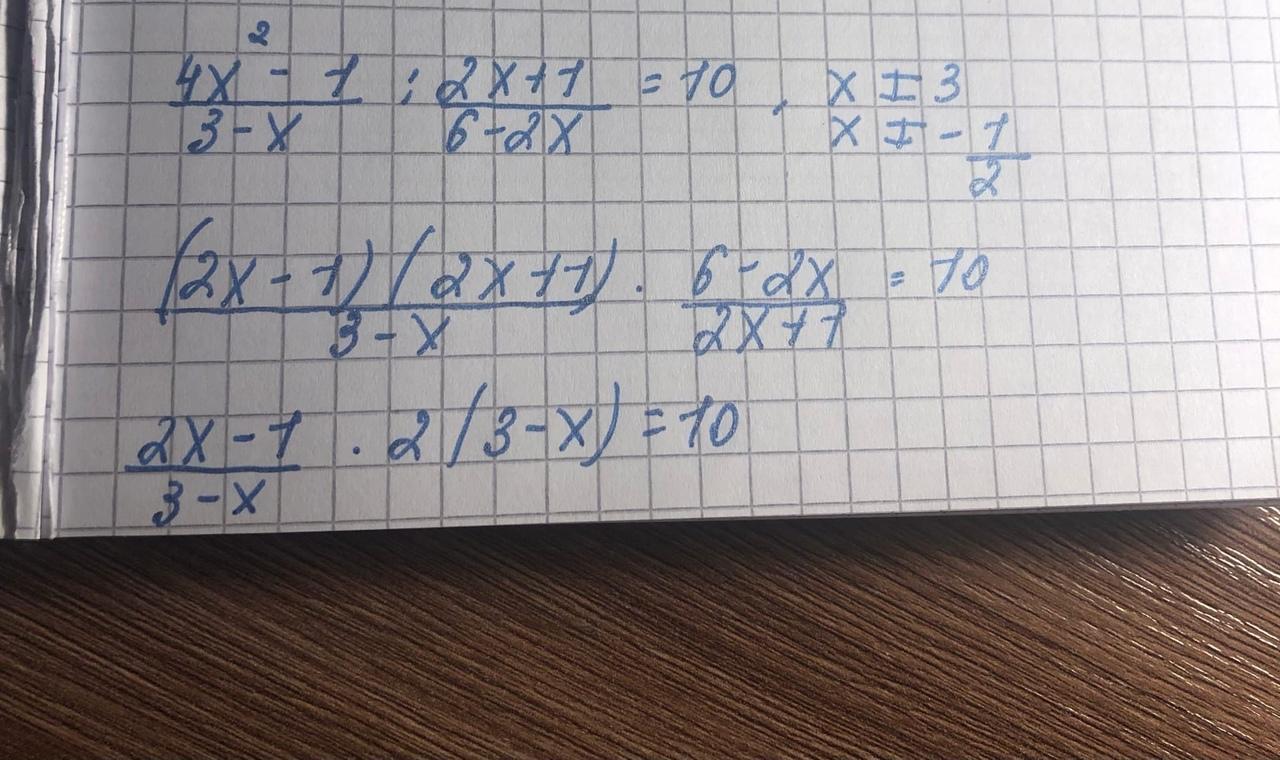 4x² - 1 / 3 - x : 2x+1 / 6-2x = 10, x ≠ 3
x ≠ - 1/2
(2x - 1)(2x+1) / 3 - x · 6-2x / 2x+1 = 10
2x - 1 / 3 - x · 2(3-x) = 10